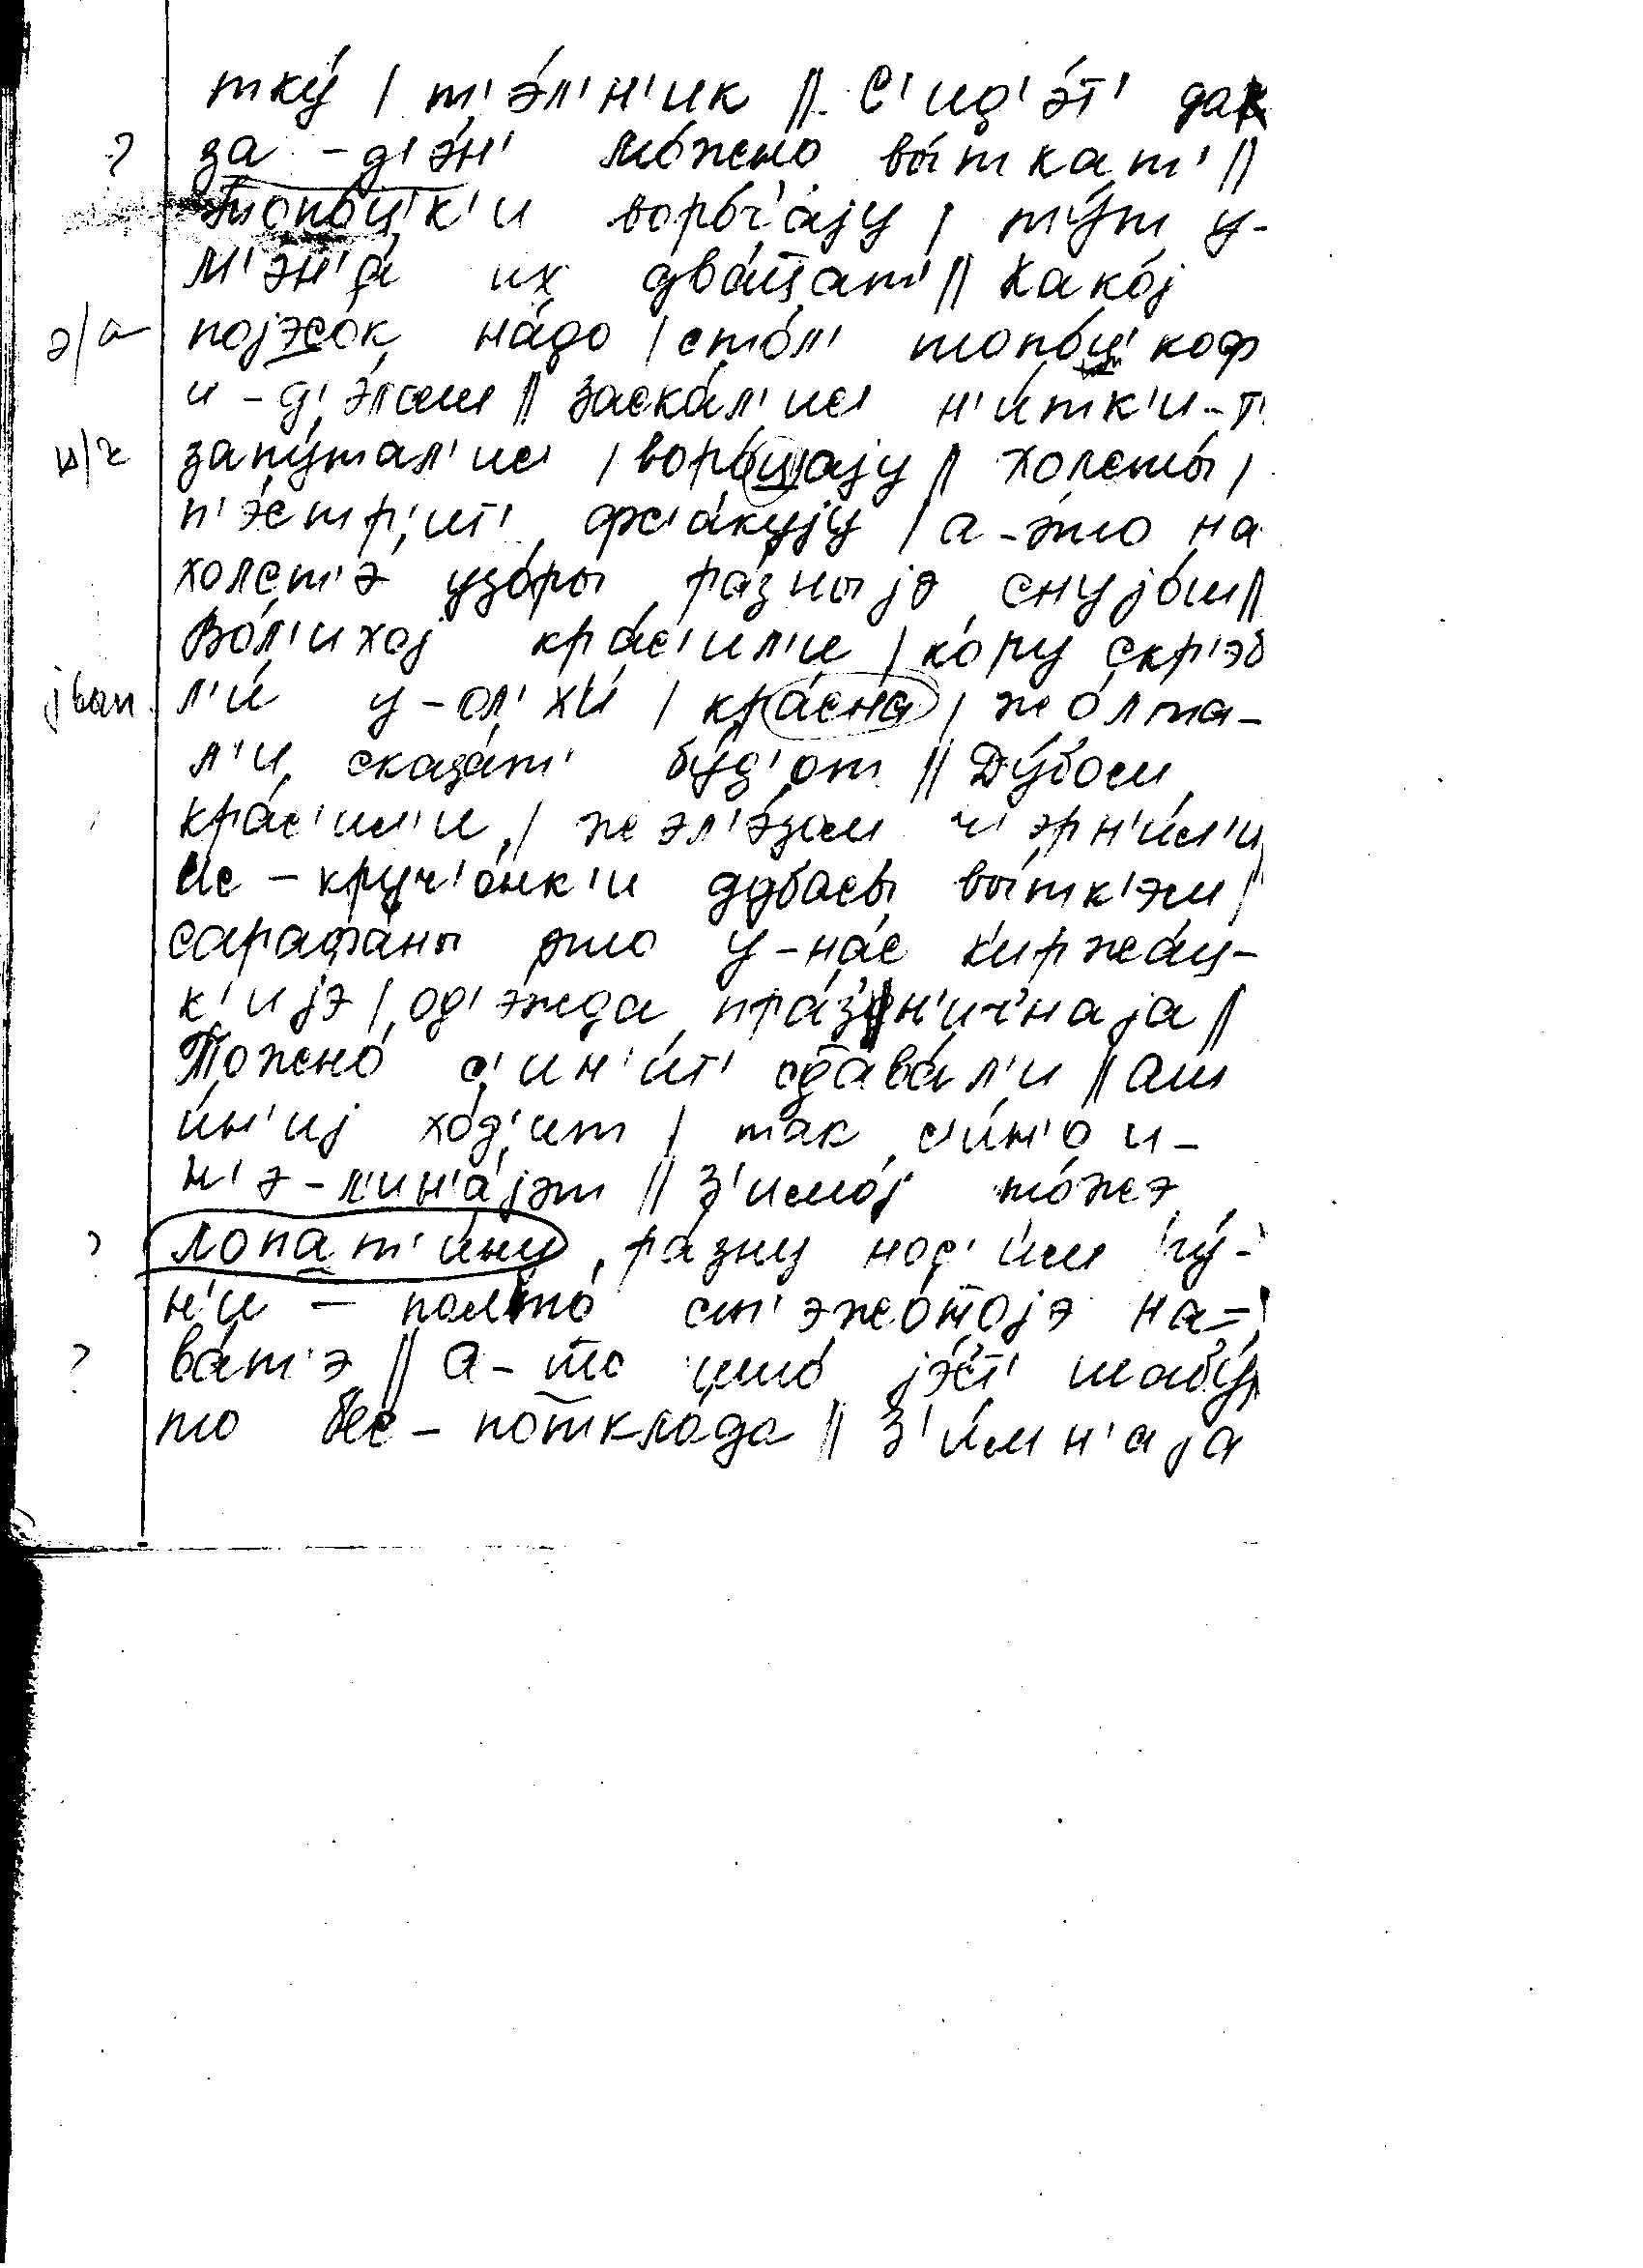 ткý | т'э́л'н'ик || С'ид'э́т' дак
? за - д'э́н' мо́жно вы́ткат' ||
Топо́ц'к'и воро́ч'ајy | ту́т у-
м'эн'а́ их два́ц̄ат' || Како́ј
э/а појэсо́к на́до | сто́л' топо́ц'коф
и - д'э́лам || заска́л'ис' н'и́тк'и-т
ц/ч запу́тал'ис' | воро́ц'ајy || холсты́ |
п'эстр'ит' фс'а́куjу | а - э́то на
холст'э́ узо́ры ра́зныjэ снуjо́м ||
Во́л'ихоj кра́с'ил'и | кору́ скр'эб
јван л'и́ у - ол'хи́ | кра́сна | жо́лта-
л'и сказа́т' бу́д'от || Ду́бом
кра́с'ил'и | жэл'э́зам ч'эрн'и́л'и
Ис - круч'о́нк'и дубасы́ вы́тк'эм |
сарафа́ны это у - на́с к'иржа́ц-
к'иjэ | од'э́жда пра́з'н'ич'наја ||
Тожно́ с'ин'и́т' сдава́л'и || Ам
и́н'иj хо́д'ит | так с'и́н'о и -
н'э - л'ин'а́јэт || З'имо́j то́жэ
? лопат'и́ну ра́зну нос'и́м | гу́-
н'и — пал'то́ ст'эжо́ноjэ на-
? ва́т'э || а - то што́ jэ́ст' шабу́р
то бес - потклáда || З'и́мн'аjа